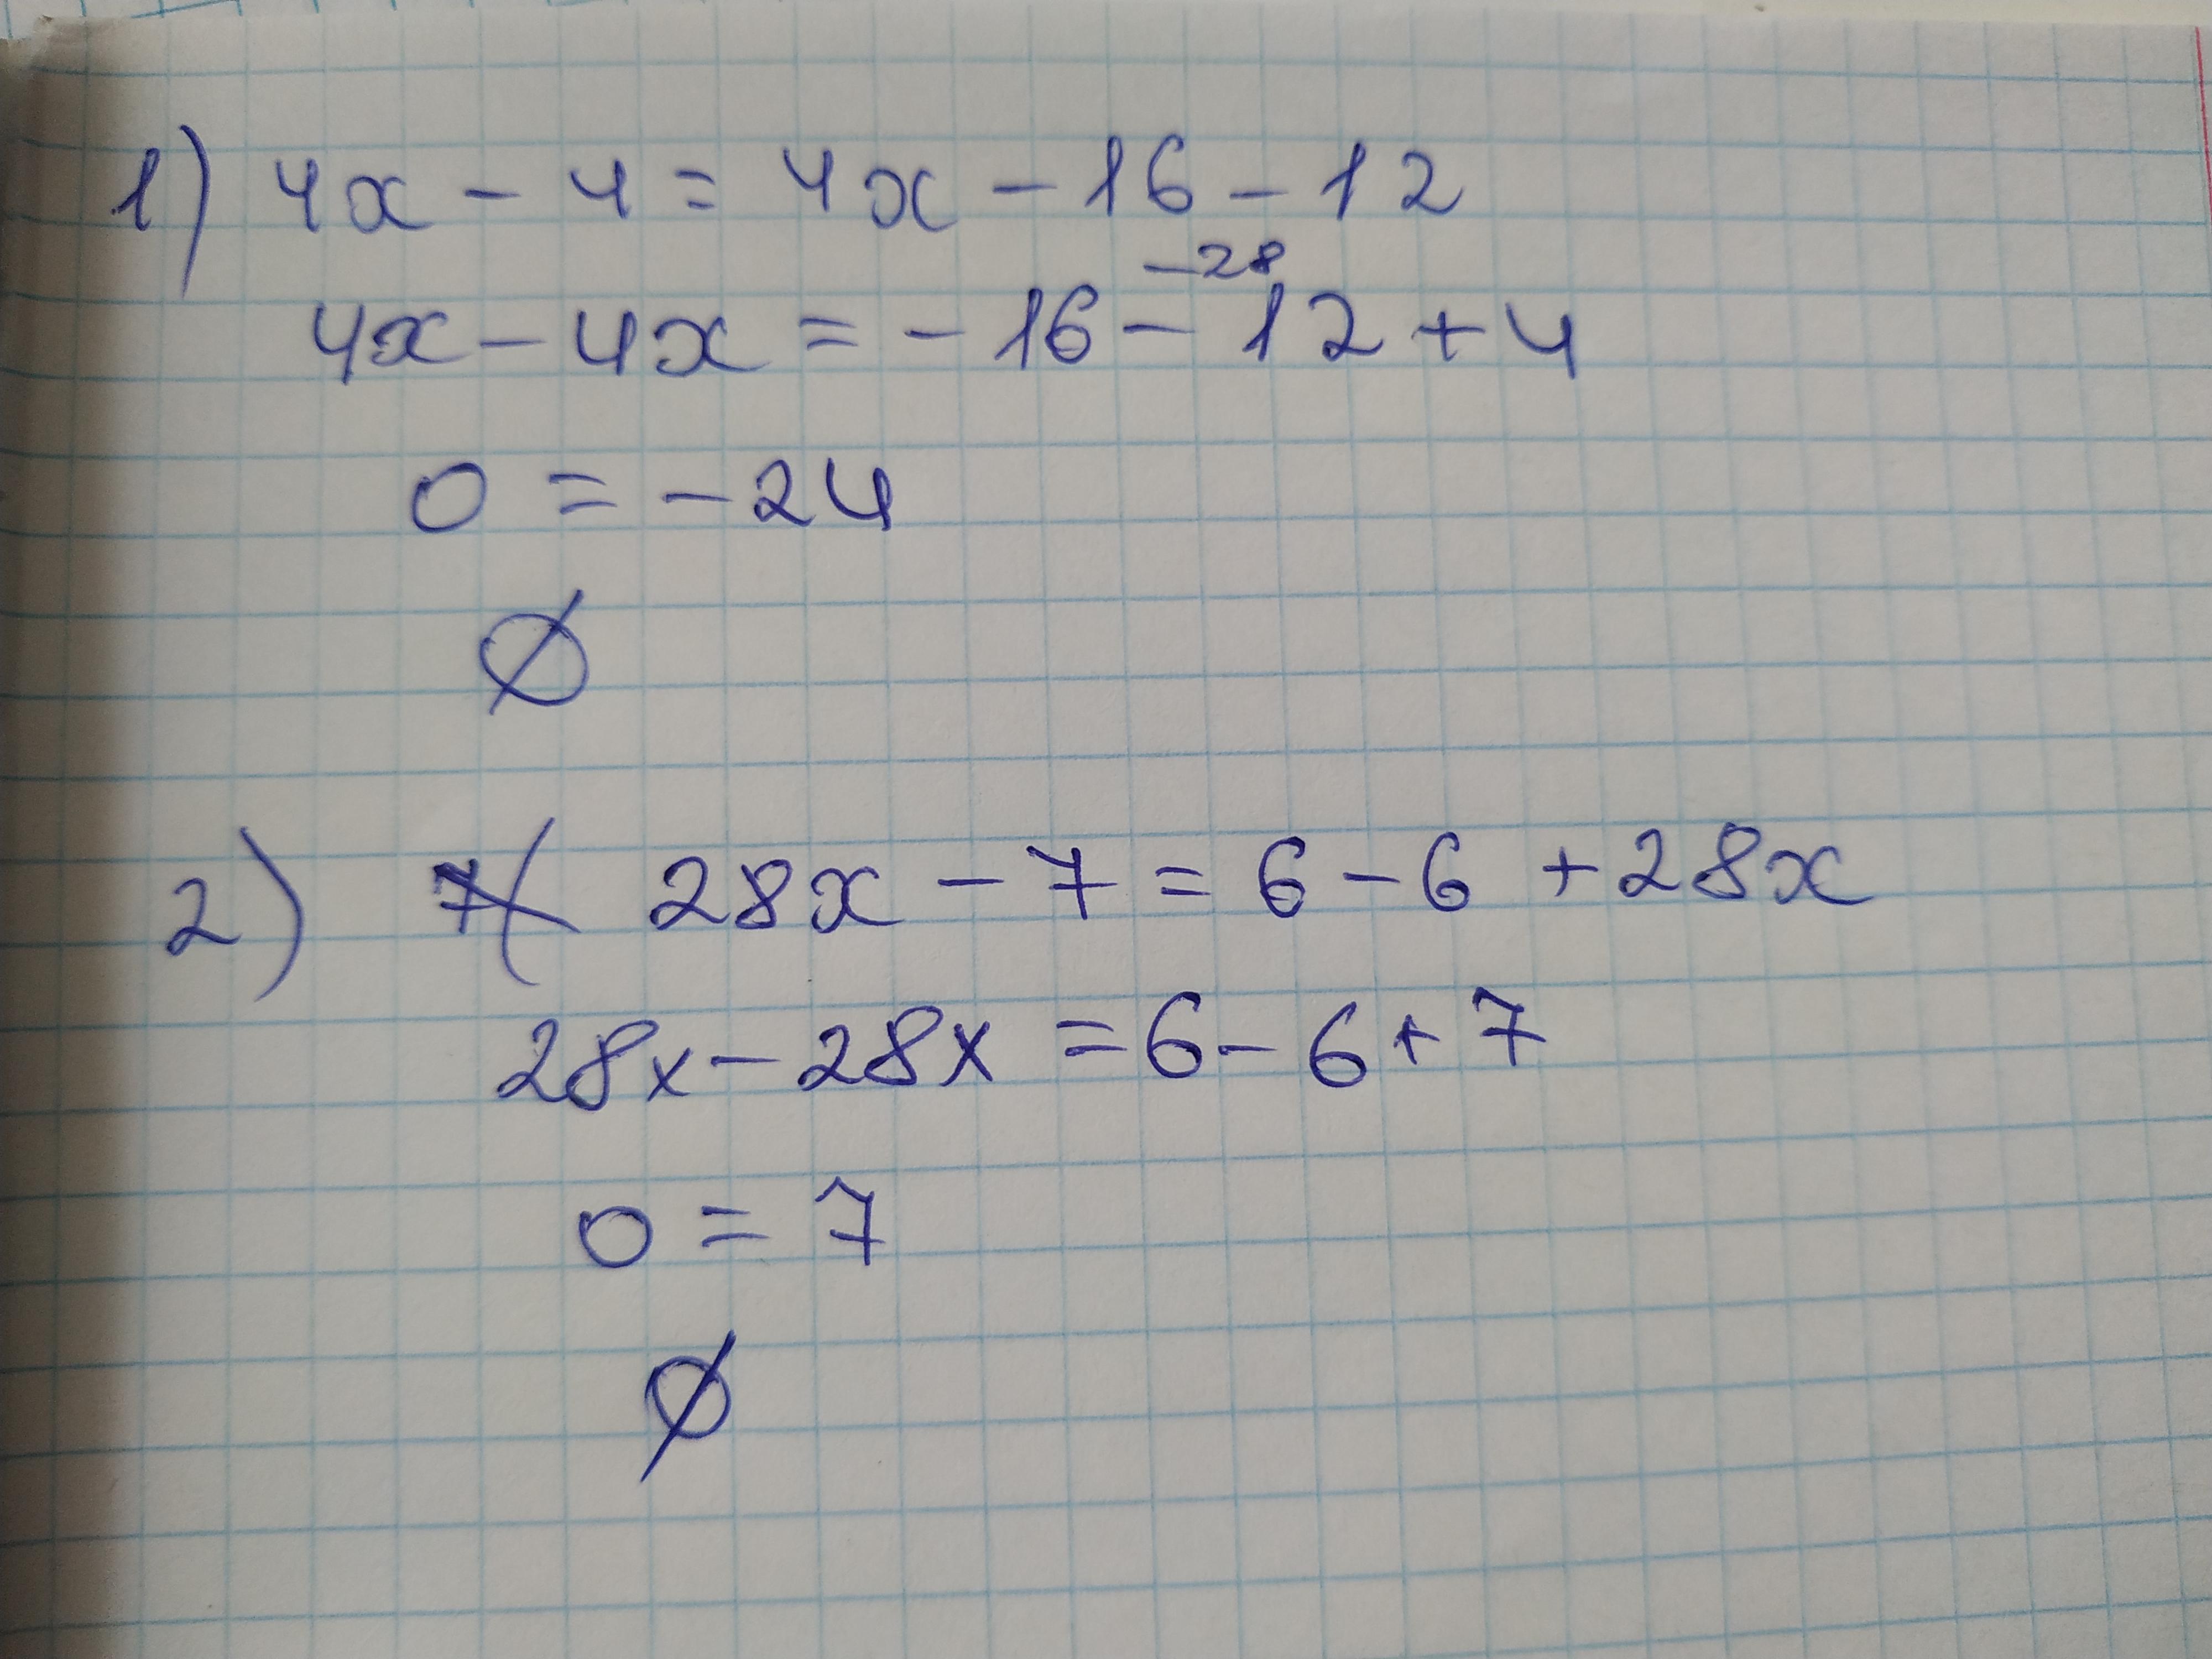 1) 4x - 4 = 4x - 16 - 12
-28
4x - 4x = - 16 - 12 + 4
0 = - 24
∅
2) 28x - 7 = 6 - 6 + 28x
28x - 28x = 6 - 6 + 7
0 = 7
∅